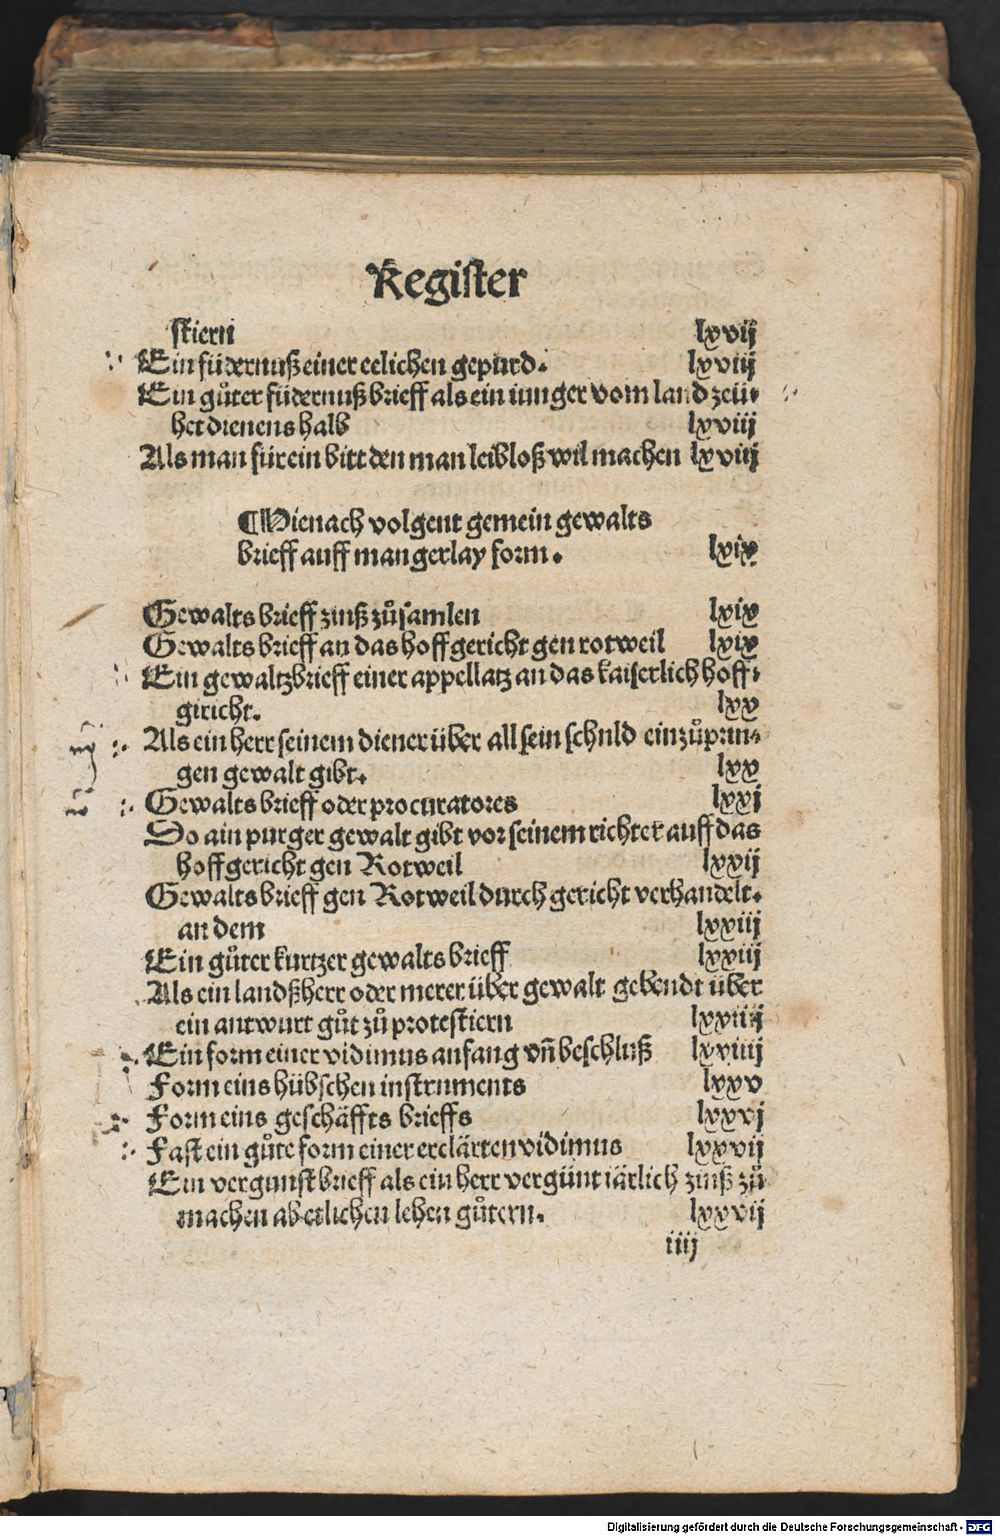 Register
stiern lxvij
Ein füdernuß einer eelichen gepurd. lxviij
Ein gůter füdernuß brieff als ein iunger vom land zeü⸗
het dienens halb lxviij
Als man für ein bitt den man leibloß wil machen lxviij
¶Hienach volgent gemein gewalts
brieff auff mangerlay form. lxix
Gewalts brieff zinß zůsamlen lxix
Gewalts brieff an das hoffgericht gen rotweil lxix
Ein gewaltzbrieff einer appellatz an das kaiserlich hoff⸗
giricht. lxx
Als ein herr seinem diener über all sein schuld einzůprin⸗
gen gewalt gibt. lxx
Gewalts brieff oder procuratores lxxj
So ain purger gewalt gibt vor seinem richter auff das
hoffgericht gen Rotweil lxxij
Gewalts brieff gen Rotweil durch gericht verhandelt.
an dem lxxiij
Ein gůter kurtzer gewalts brieff lxxiij
Als ein landßherr oder merer über gewalt gebendt über
ein antwurt gůt zů protestiern lxxiiij
Ein form einer vidimus anfang vñ beschluß lxviiij
Form eins hübschen instruments lxxv
Form eins geschäffts brieffs lxxvj
Fast ein gůte form einer erclärten vidimus lxxvij
Ein vergunst brieff als ein herr vergünt iärlich zinß zů
machen ab etlichen lehen gůtern. lxxvij
iiij
Digitalisierung gefördert durch die Deutsche Forschungsgemeinschaft - DFG